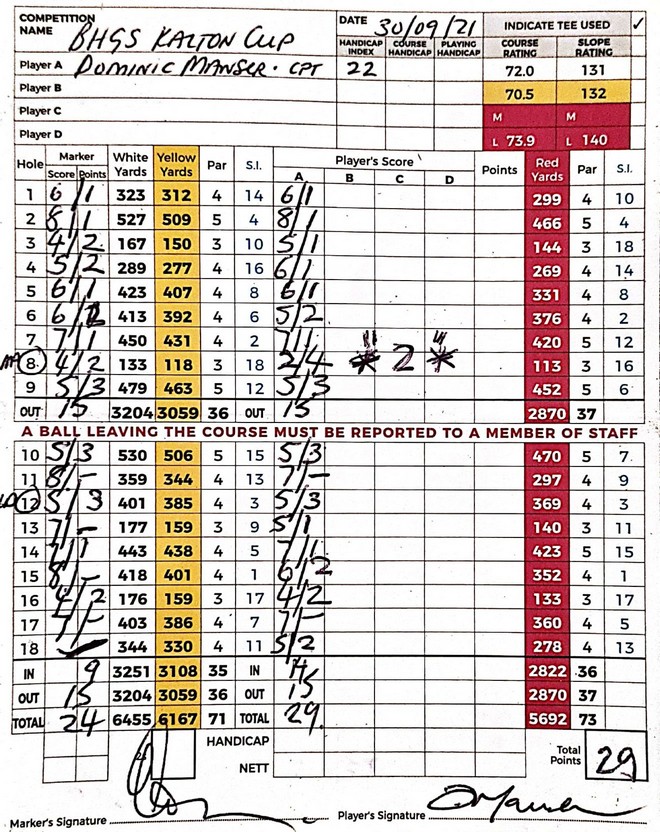 COMPETITION NAME BHGS KALTON CUP DATE 30/09/21 INDICATE TEE USED ✓
HANDICAP INDEX COURSE HANDICAP PLAYING HANDICAP COURSE RATING SLOPE RATING
Player A DOMINIC MANSER · CPT 22 72.0 131
Player B 70.5 132
Player C M M
Player D L 73.9 L 140
Hole Marker White Yards Yellow Yards Par S.I. Player's Score Points Red Yards Par S.I.
Score Points A B C D
1 6/1 323 312 4 14 6/1 299 4 10
2 8/1 527 509 5 4 8/1 466 5 4
3 4/2 167 150 3 10 5/1 144 3 18
4 5/2 289 277 4 16 6/1 269 4 14
5 6/1 423 407 4 8 6/1 331 4 8
6 6/ 413 392 4 6 5/2 376 4 2
7 7/1 450 431 4 2 7/1 420 5 12
8 4/2 133 118 3 18 2/4 !! * 2 !! * 113 3 16
9 5/3 479 463 5 12 5/3 452 5 6
OUT 15 3204 3059 36 OUT 15 2870 37
A BALL LEAVING THE COURSE MUST BE REPORTED TO A MEMBER OF STAFF
10 5/3 530 506 5 15 5/3 470 5 7
11 8/- 359 344 4 13 7/- 297 4 9
12 5/3 401 385 4 3 5/3 369 4 3
13 7/- 177 159 3 9 5/1 140 3 11
14 7/1 443 438 4 5 7/1 423 5 15
15 8/- 418 401 4 1 6/2 352 4 1
16 4/2 176 159 3 17 4/2 133 3 17
17 7/- 403 386 4 7 7/- 360 4 5
18 344 330 4 11 5/2 278 4 13
IN 9 3251 3108 35 IN 14 2822 36
OUT 15 3204 3059 36 OUT 15 2870 37
TOTAL 24 6455 6167 71 TOTAL 29. 5692 73
HANDICAP Total Points 29
NETT
Marker's Signature Player's Signature